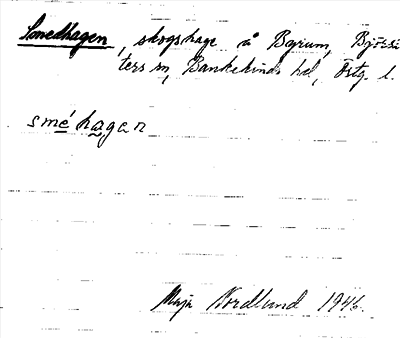 Smedhagen, skogshage å Bjärum, Björsä
ters sn, Bankekinds hd, Östg. l.
sméhagen
Maja Nordlund 1946.